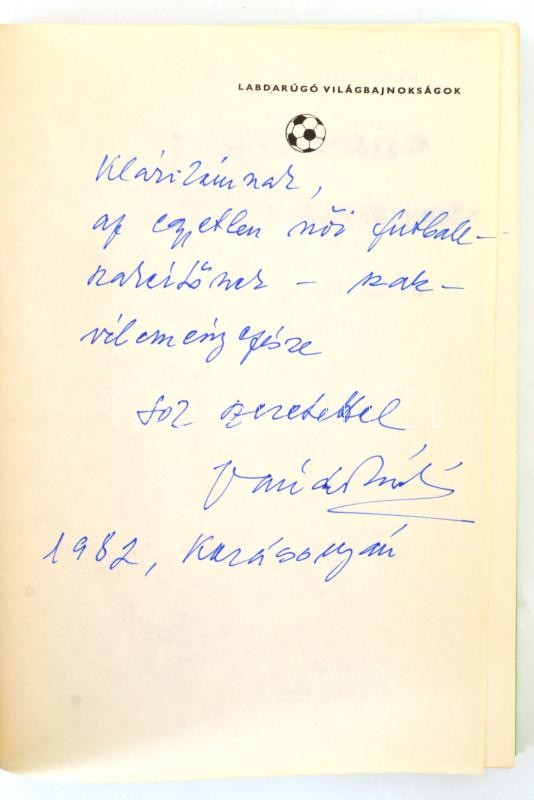 LABDARÚGÓ VILÁGBAJNOKSÁGOK
Klárikámnak,
az egyetlen női futball-
szakértőnek – szak-
véleményezésre
sok szeretettel
1982, Karácsonyán